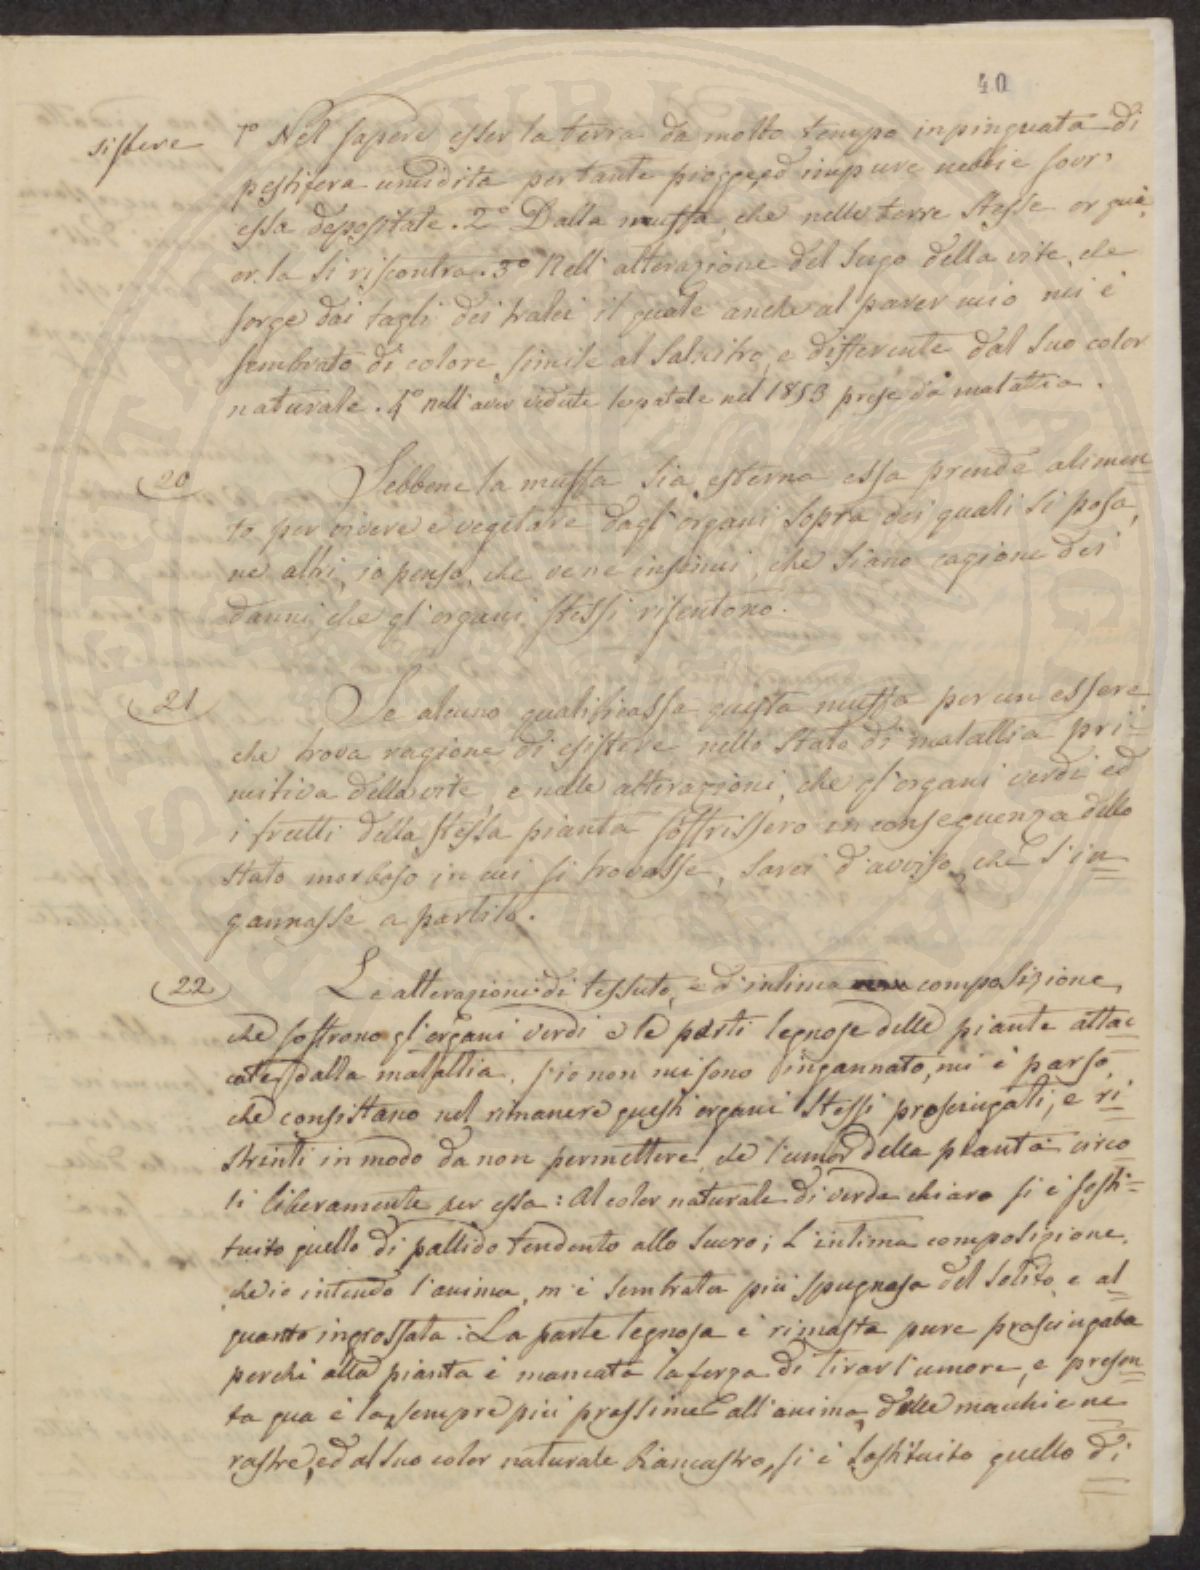 40
sistere 1° Nel sapere esser la terra da molto tempo inpinguata di
pestifera umidità per tante piogge, ed impure nebbie sovr'
essa depositate. 2° Dalla muffa, che nelle terre stesse or quà,
or là si riscontra. 3° Nell' alterazione del sugo della vite, che
sorge dai tagli dei tralci il quale anche al parer mio mi è
sembrato di colore simile al salnitro, e differente dal suo color
naturale. 4° nell'aver vedute le patate nel 1853 prese da malattia.
20 Sebbene la muffa sia esterna essa prende alimen=
to per vivere e vegetare dagl'organi sopra dei quali si posa,
nè altri, io penso, che ve ne insinui, che siano cagione dei
danni, che gl'organi stessi risentono.
21 Se alcuno qualificasse questa muffa per un essere
che trova ragione di esistere nello stato di malattia pri=
mitiva della vite, e nelle alterazioni, che gl'organi verdi ed
i frutti della stessa pianta soffrissero in conseguenza dello
stato morboso in cui si trovasse, sarei d'avviso, che s'in=
gannasse a partito.
22 Le alterazioni di tessuto, e d'intima composizione,
che soffrono gl'organi verdi e le parti legnose delle piante attac=
cate dalla malattia, s'io non mi sono ingannato, mi è parso,
che consistano nel rimanere questi organi stessi prosciugati, e ri=
stretti in modo da non permettere, che l'umor della pianta circo=
li liberamente per essa: Al color naturale di verde chiaro si è sosti=
tuito quello di pallido tendente allo scuro; L'intima composizione,
che io intendo l'anima, m'è sembrata più spugnosa del solito, e al=
quanto ingrossata: La parte legnosa è rimasta pure prosciugata
perchè alla pianta è mancata la forza di tirar l'umore, e presen=
ta qua e là, sempre più prossime all'anima, delle macchie ne=
rastre, ed al suo color naturale biancastro, si è sostituito quello di